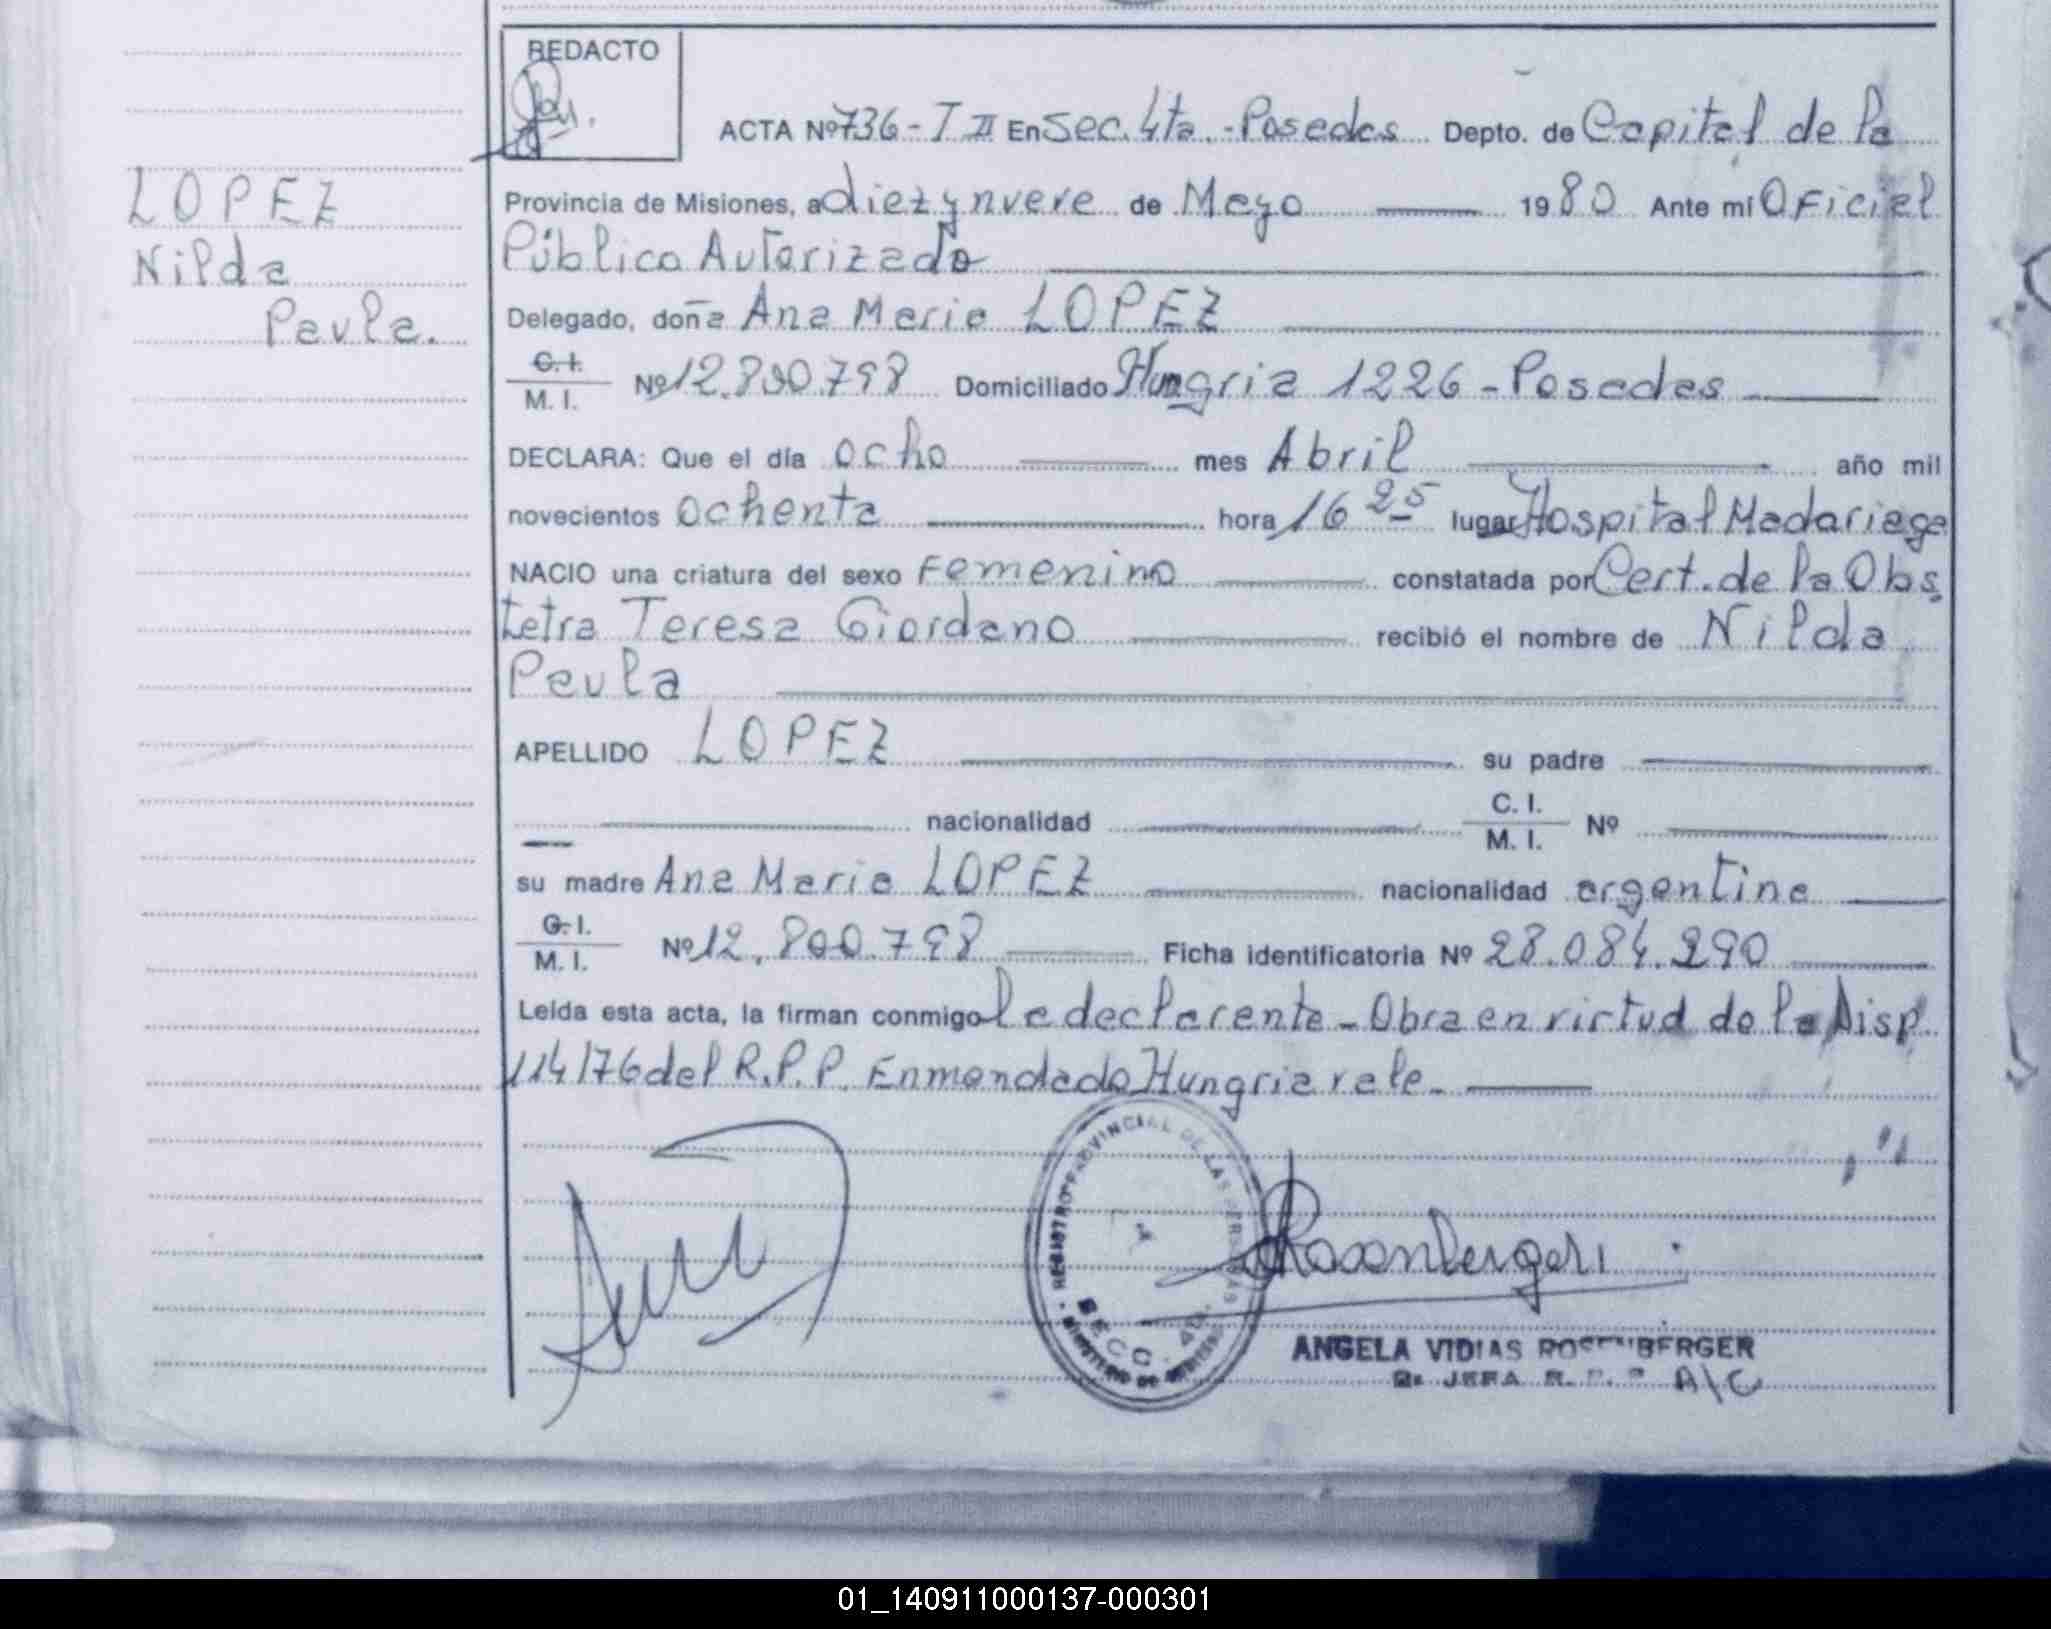 REDACTO
ACTA Nº 736 - T II En Sec. 4ta. - Posadas Depto. de Capital de la
LOPEZ
Nilda
Paula.
Provincia de Misiones, a diez y nueve de Mayo 1980 Ante mí Oficial
Público Autorizado
Delegado, doña Ana Maria LOPEZ
C. I.
M. I. Nº 12.800.798 Domiciliado Hungria 1226 - Posadas
DECLARA: Que el día ocho mes Abril año mil
novecientos ochenta hora 16 25 lugar Hospital Madariaga
NACIO una criatura del sexo Femenino constatada por Cert. de la Obs
tetra Teresa Giordano recibió el nombre de Nilda
Paula
APELLIDO LOPEZ su padre
nacionalidad C. I.
M. I. Nº
su madre Ana Maria LOPEZ nacionalidad argentina
C. I.
M. I. Nº 12.800.798 Ficha identificatoria Nº 28.084.290
Leída esta acta, la firman conmigo la declarante - Obra en virtud de la Disp.
114/76 del R.P.P. Enmendado Hungria vale.
REGISTRO PROVINCIAL DE LAS PERSONAS
SECC. 4a.
Rosenberger
ANGELA VIDIAS ROSENBERGER
JEFA R. P. P. A/C
01_140911000137-000301